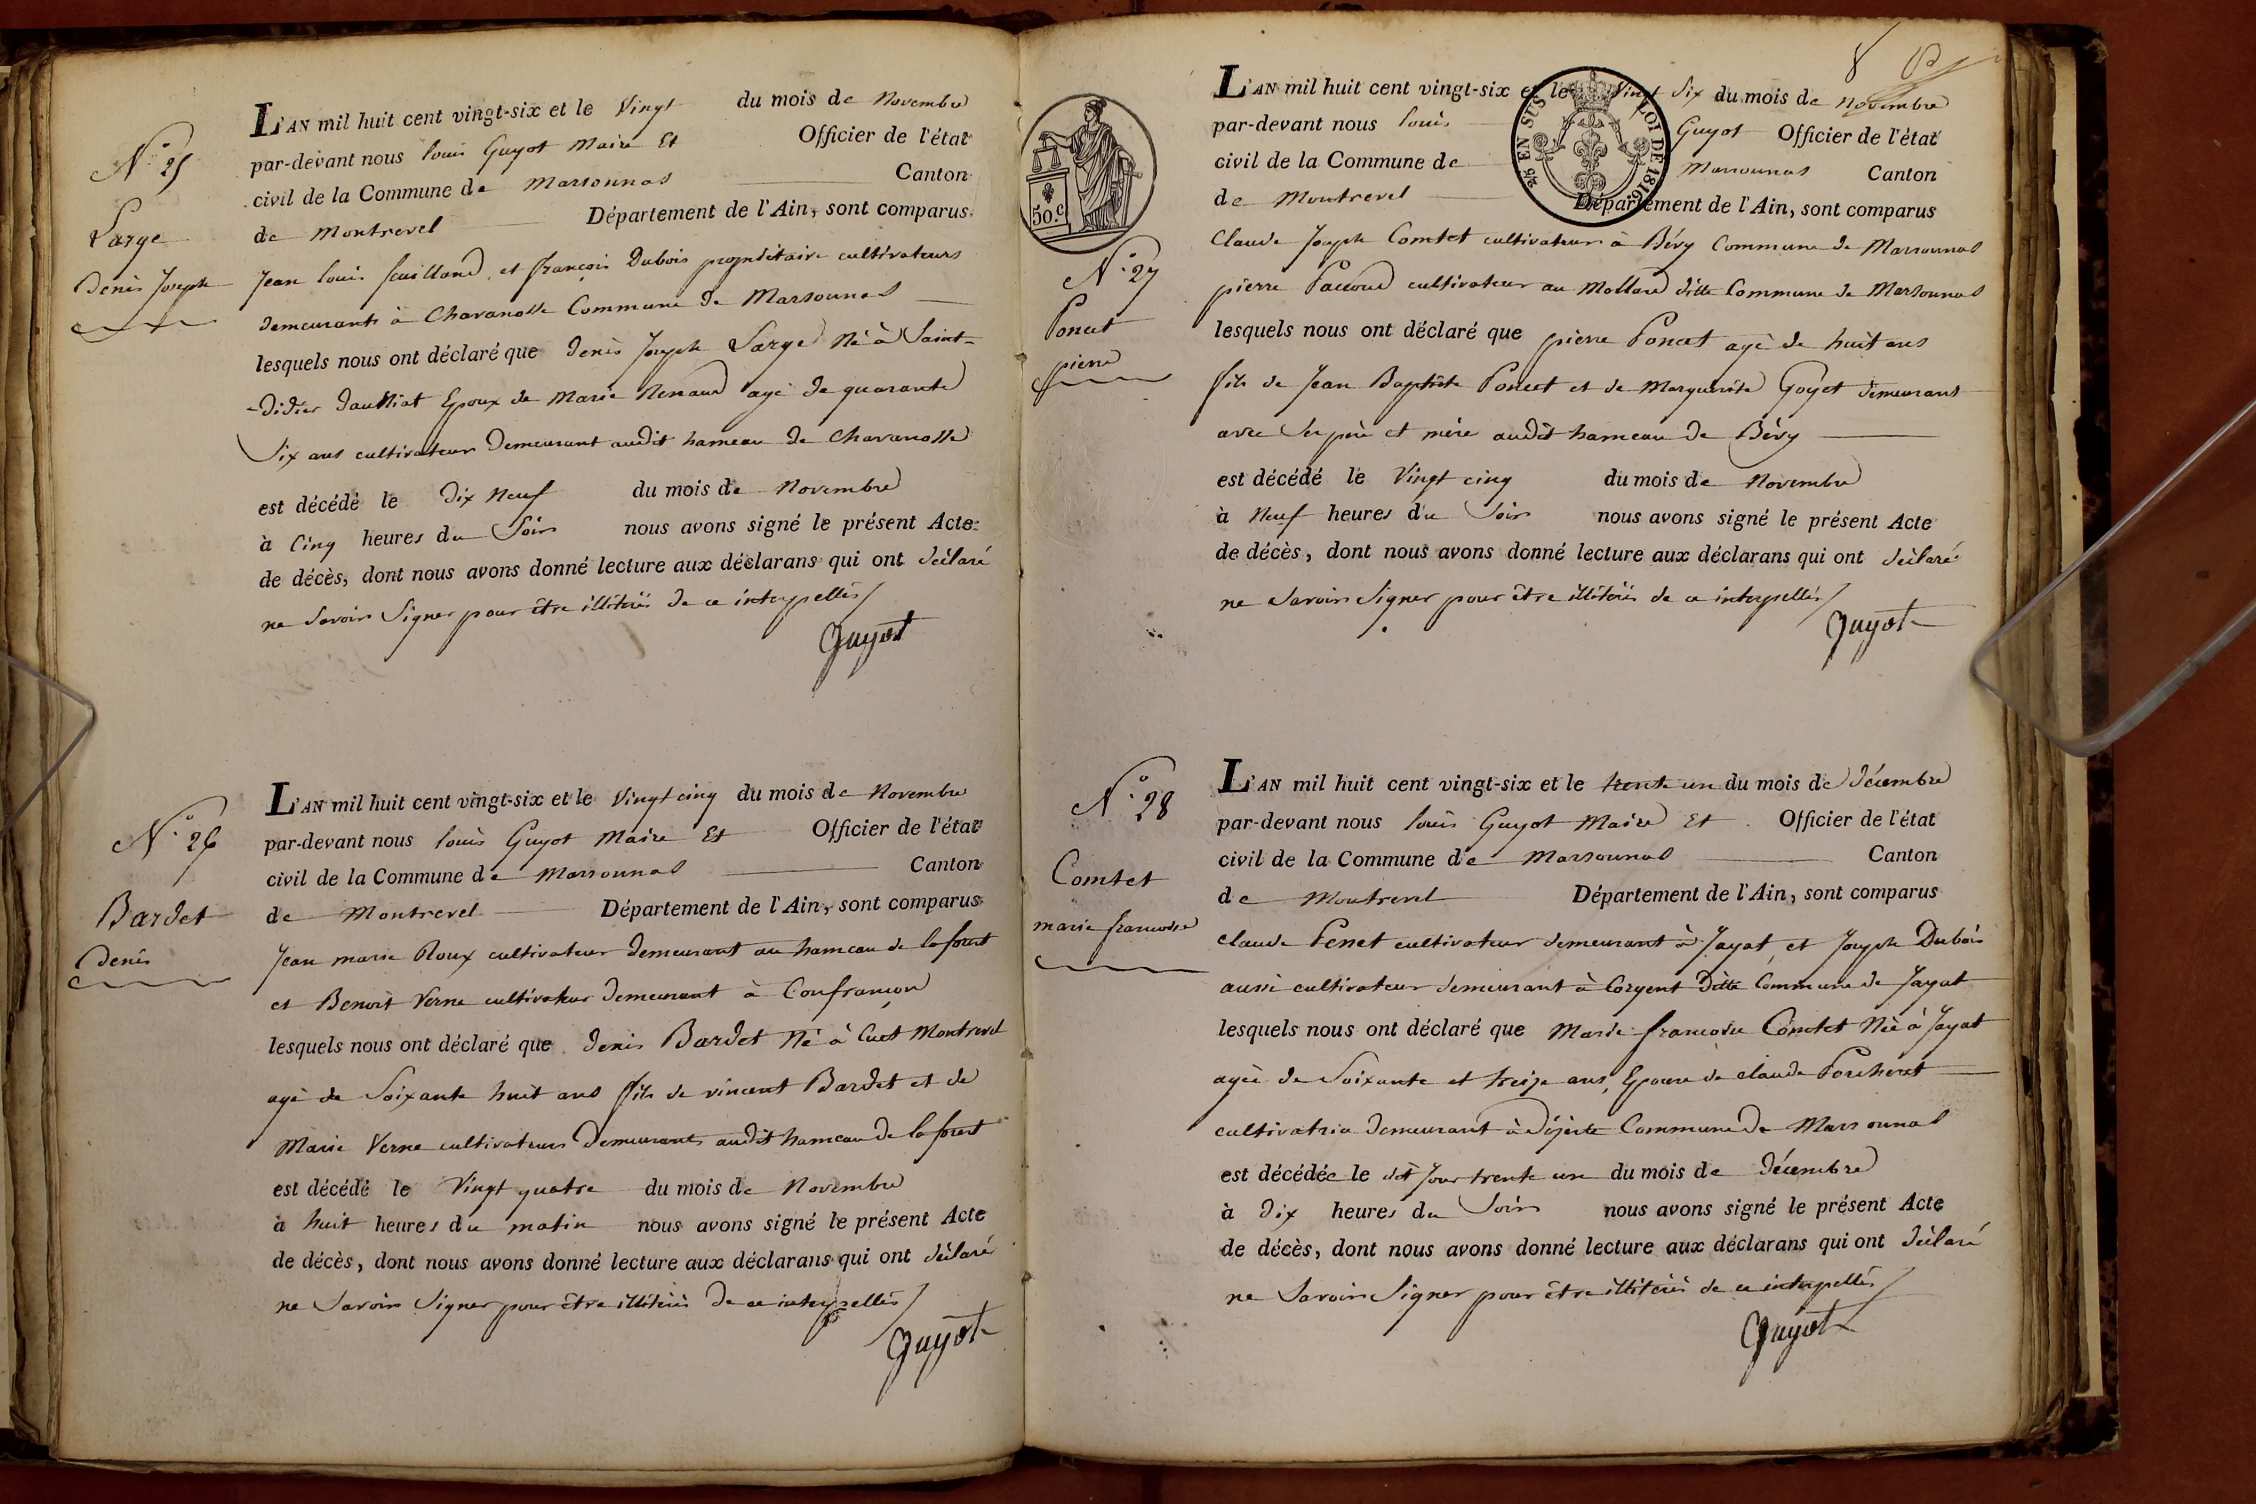 N.° 25
Large
Denis Joseph
L'AN mil huit cent vingt-six et le Vingt du mois de Novembre
par-devant nous louis Guyot Maire Et Officier de l'état
civil de la Commune de Marsonnas Canton
de Montrevel Département de l'Ain, sont comparus
Jean louis feuilland et françois Dubois propriétaire cultivateurs
demeurants à Chavanosse Commune de Marsonnas
lesquels nous ont déclaré que denis Joseph Large Né à Saint-
-Didier daussiat Epoux de Marie Renaud agé de quarante
Six ans cultivateur Demeurant audit hameau de Chavanosse
est décédé le Dix Neuf du mois de Novembre
à Cinq heures du Soir nous avons signé le présent Acte
de décès, dont nous avons donné lecture aux déclarans qui ont déclaré
ne Savoir Signer pour être illitérés de ce interpellés
Guyot
N.° 26
Bardet
Denis
L'AN mil huit cent vingt-six et le Vingt cinq du mois de Novembre
par-devant nous louis Guyot Maire Et Officier de l'état
civil de la Commune de Marsonnas Canton
de Montrevel Département de l'Ain, sont comparus
Jean marie Roux cultivateur Demeurant au hameau de laforest
et Benoit Verne cultivateur Demeurant à Confrançon
lesquels nous ont déclaré que denis Bardet Né à Cuet Montrevel
agé de Soixante huit ans fils de vincent Bardet et de
Marie Verne cultivateurs Demeurants audit hameau de laforest
est décédé le Vingt quatre du mois de Novembre
à huit heures du matin nous avons signé le présent Acte
de décès, dont nous avons donné lecture aux déclarans qui ont déclaré
ne Savoir Signer pour être illitérés De ce interpellés
Guyot
8
50.c
25 EN SUS LOI DE 1816
N.° 27
Poncet
pierre
L'AN mil huit cent vingt-six et le Vingt Six du mois de Novembre
par-devant nous louis Guyot Officier de l'état
civil de la Commune de Marsonnas Canton
de Montrevel Département de l'Ain, sont comparus
Claude Joseph Comtet cultivateur à Bévy Commune de Marsonnas
pierre Paccoud cultivateur au Mollard ditte Commune de Marsonnas
lesquels nous ont déclaré que pierre Poncet agé de huit ans
fils de Jean Baptiste Poncet et de Marguerite Goyet demeurant
avec Ses père et mère audit hameau de Bévy
est décédé le Vingt cinq du mois de Novembre
à Neuf heures du Soir nous avons signé le présent Acte
de décès, dont nous avons donné lecture aux déclarans qui ont déclaré
ne Savoir Signer pour être illitérés de ce interpellés
Guyot
N.° 28
Comtet
marie francoise
L'AN mil huit cent vingt-six et le trente un du mois de Décembre
par-devant nous louis Guyot Maire Et Officier de l'état
civil de la Commune de Marsonnas Canton
de Montrevel Département de l'Ain, sont comparus
claude Penet cultivateur demeurant à Jayat et Joseph Dubois
aussi cultivateur demeurant à Corgent Ditte Commune de Jayat
lesquels nous ont déclaré que Marie francoise Comtet Née à Jayat
agée de Soixante et treize ans, Epouse de claude Porcheret
cultivatrice demeurant à Commune de Marsonnas
est décédée le dit Jour trente un du mois de Décembre
à Dix heures du Soir nous avons signé le présent Acte
de décès, dont nous avons donné lecture aux déclarans qui ont déclaré
ne Savoir Signer pour être illitérés de ce interpellés
Guyot